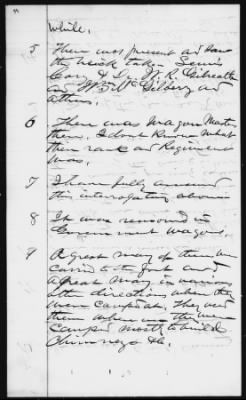 while.
5 There was present and saw
the brick taken Lewis
Cary & Dr. W. R. Gilbreath
and Wm McGilbery and
others.
6 There was Wagon Masters
there. I dont know what
their rank or Regiment
was.
7 I have fully answered
this interrogatory above
8 It was removed in
Government wagons.
9 A great many of them were
carried to the fort and
a great many in various
other directions where they
were campd at. They used
them where the men
camped mostly to build
chimneys &c.